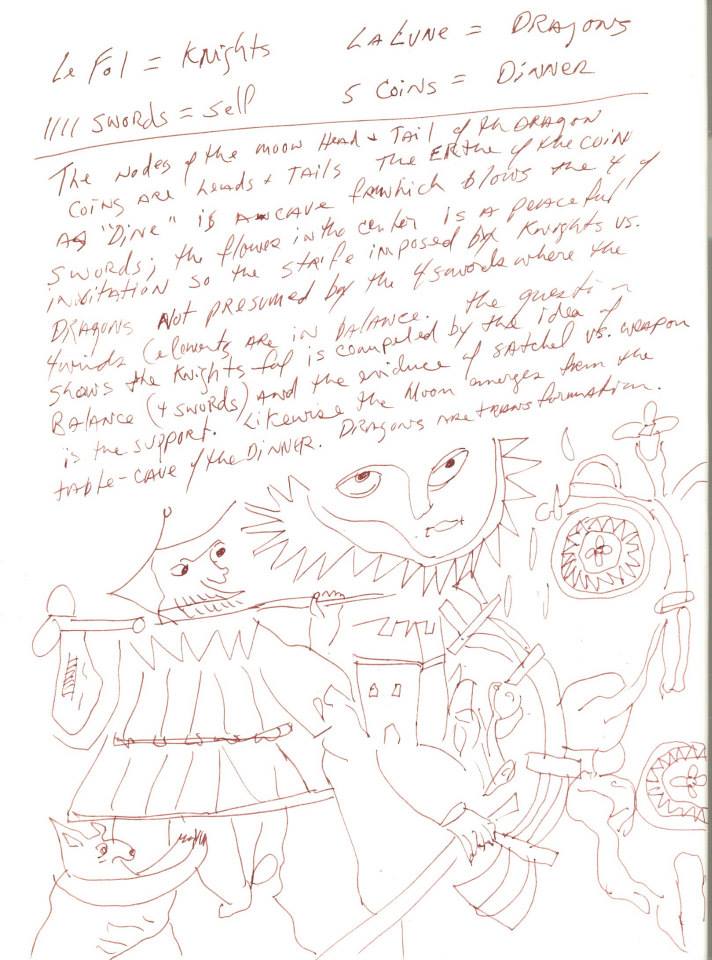 Le Fol = Knights
LA LUNE = DRAGONS
//// SWORDS = Self
5 COINS = DINNER
The Nodes of the moon Head & TAIL of the DRAGON
COINS ARE heads & TAILS The of the COIN
AS "DINE" is A CAVE from which blows the 4 of
SWORDS; the flower in the center is a peaceful
INVITATION so the STRIFE imposed by Knights vs.
DRAGONS NOT PRESUMED by the 4 swords where the
4 winds (elements ARE in BALANCE. The question
shows the Knights fol is compelled by the idea of
BALANCE (4 SWORDS) AND the evidence of SATCHEL vs. WEAPON
is the SUPPORT. Likewise the Moon emerges from the
TABLE-CAVE of the DINNER. DRAGONS ARE TRANSFORMATION.